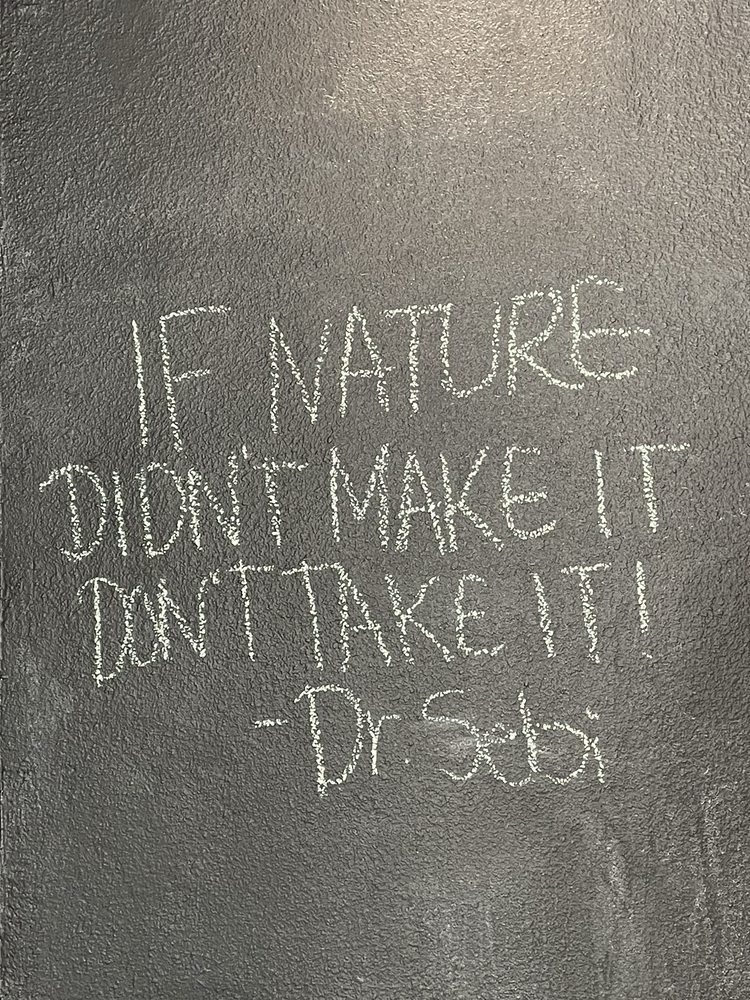 IF NATURE
DIDN'T MAKE IT
DON'T TAKE IT!
- Dr. Sebi